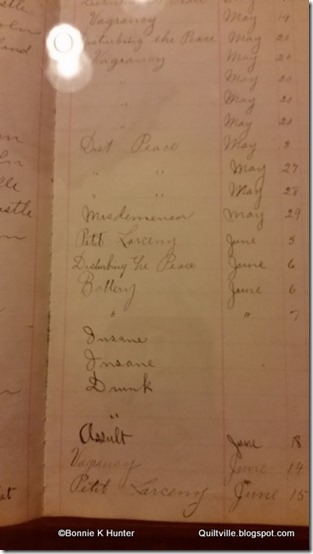 Disturbing the Peace May
Vagrancy May 19
Disturbing the Peace May 20
Vagrancy May 20
" May 20
" May 20
" May 20
Dist Peace May 3
" " May 27
" " May 28
Misdemenor May 29
Petit Larceny June 5
Disturbing the Peace June 6
Battery June 6
" " 7
Insane
Insane
Drunk
"
Assult June 18
Vagrancy June 14
Petit Larceny June 15
©Bonnie K Hunter Quiltville.blogspot.com